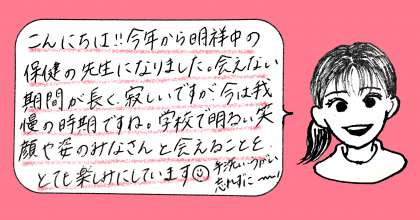 こんにちは!!今年から明祥中の
保健の先生になりました。会えない
期間が長く、寂しいですが今は我
慢の時期ですね。学校で明るい笑
顔や姿のみなさんと会えることを、
とても楽しみにしています☺
手洗いうがい
忘れずに〜